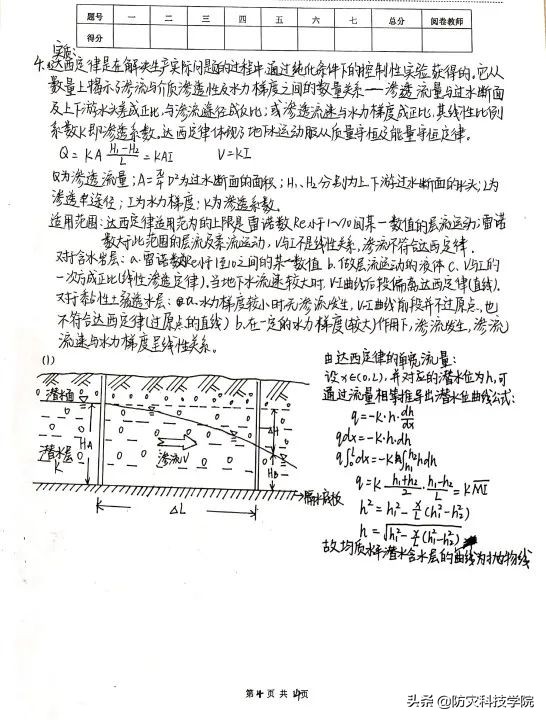 题号 一 二 三 四 五 六 七 总分 阅卷教师
得分
实质:
4. 达西定律是在解决生产实际问题的过程中,通过纯化条件下的控制性实验获得的。它从
数量上揭示了渗流与介质渗透性及水力梯度之间的数量关系——渗透流量与过水断面
及上下游水头差成正比,与渗流途径成反比;或渗透流速与水力梯度成正比,其线性比例
系数K即渗透系数。达西定律体现了地下水运动服从质量守恒及能量守恒定律。
Q = KA H₁-H₂/L = KAI V=KI
Q为渗透流量;A=π/4 D²为过水断面的面积;H₁、H₂分别为上下游过水断面的水头;L为
渗透途径;I为水力梯度;K为渗透系数。
适用范围:达西定律适用范围的上限是雷诺数Re小于1~10间某一数值的层流运动;雷诺
数大于此范围的层流及紊流运动,V与I不是线性关系,渗流不符合达西定律。
对于含水岩层:a.雷诺数Re小于1到10之间的某一数值 b.做层流运动的液体 c.V与I的
一次方成正比(线性渗透定律),当地下水流速较大时,V-I曲线后段偏离达西定律(直线).
对于黏性土弱透水层:a.水力梯度较小时无渗流发生,V-I曲线前段并不过原点,也
不符合达西定律(过原点的直线) b.在一定的水力梯度(较大)作用下,渗流发生,渗流
流速与水力梯度呈线性关系。
(1)
潜水面
HA
潜水层
K
渗流V
ΔH
HB
隔水底板
ΔL
由达西定律的单宽流量:
设x∈(0,L),并对应的潜水位为h,可
通过流量相等推导出潜水位曲线公式:
q=-K·h·dh/dx
qdx=-K·h·dh
q∫₀ᴸdx=-K∫h₁h₂hdh
q=K h₁+h₂/2 · h₁-h₂/L = KMI
h²=h₁²-x/L(h₁²-h₂²)
h=√h₁²-x/L(h₁²-h₂²)
故均质水平潜水含水层的曲线为抛物线
第4页 共 页
头条 @防灾科技学院